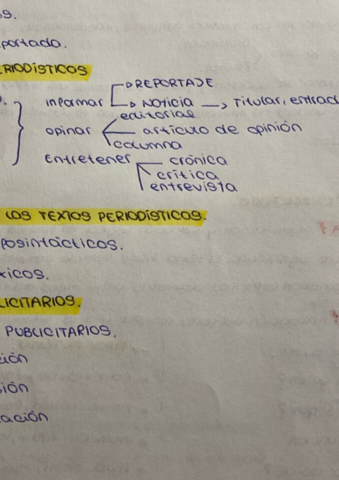 os.
portada.
ERIODÍSTICOS
REPORTAJE
informar NOTICIA → Titular, entrad
editorial
opinar artículo de opinión
columna
Entretener crónica
crítica
entrevista
LOS TEXTOS PERIODÍSTICOS.
posintácticos.
xicos.
LICITARIOS.
PUBLICITARIOS.
ción
sión
ación